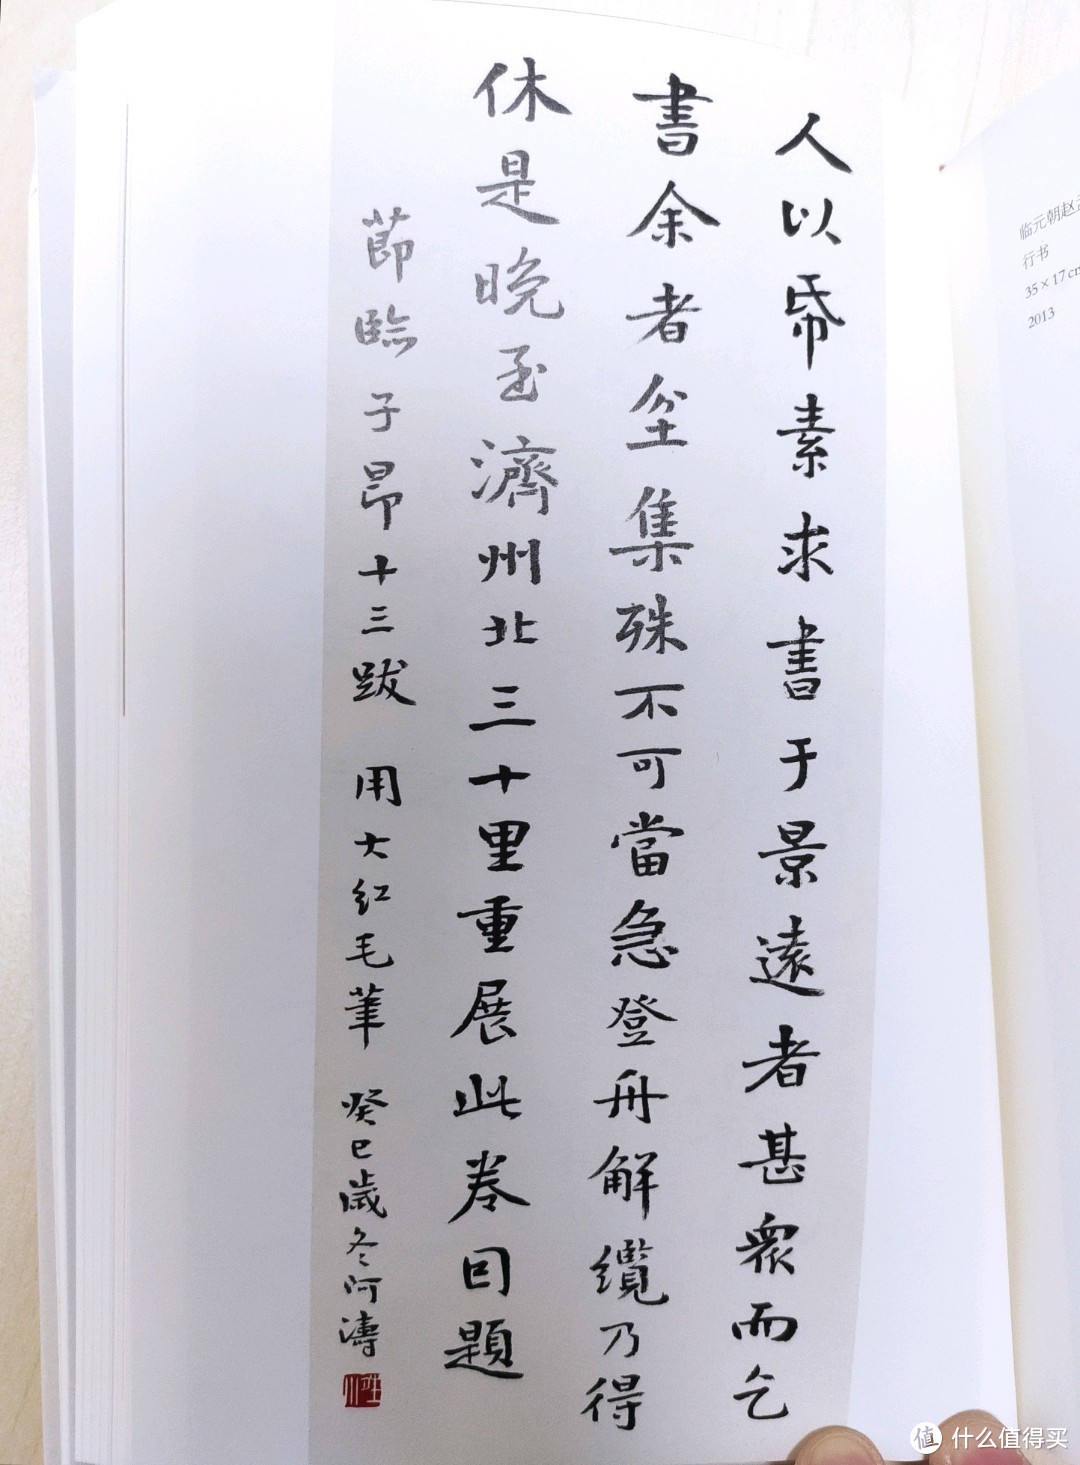 人以帋素求書于景遠者甚衆而乞
書余者坌集殊不可當急登舟解纜乃得
休是晚至濟州北三十里重展此卷因題
莭臨子昂十三跋 用大红毛筆 癸巳歲冬阿濤
临元朝赵
行书
35×17cm
2013
值 什么值得买